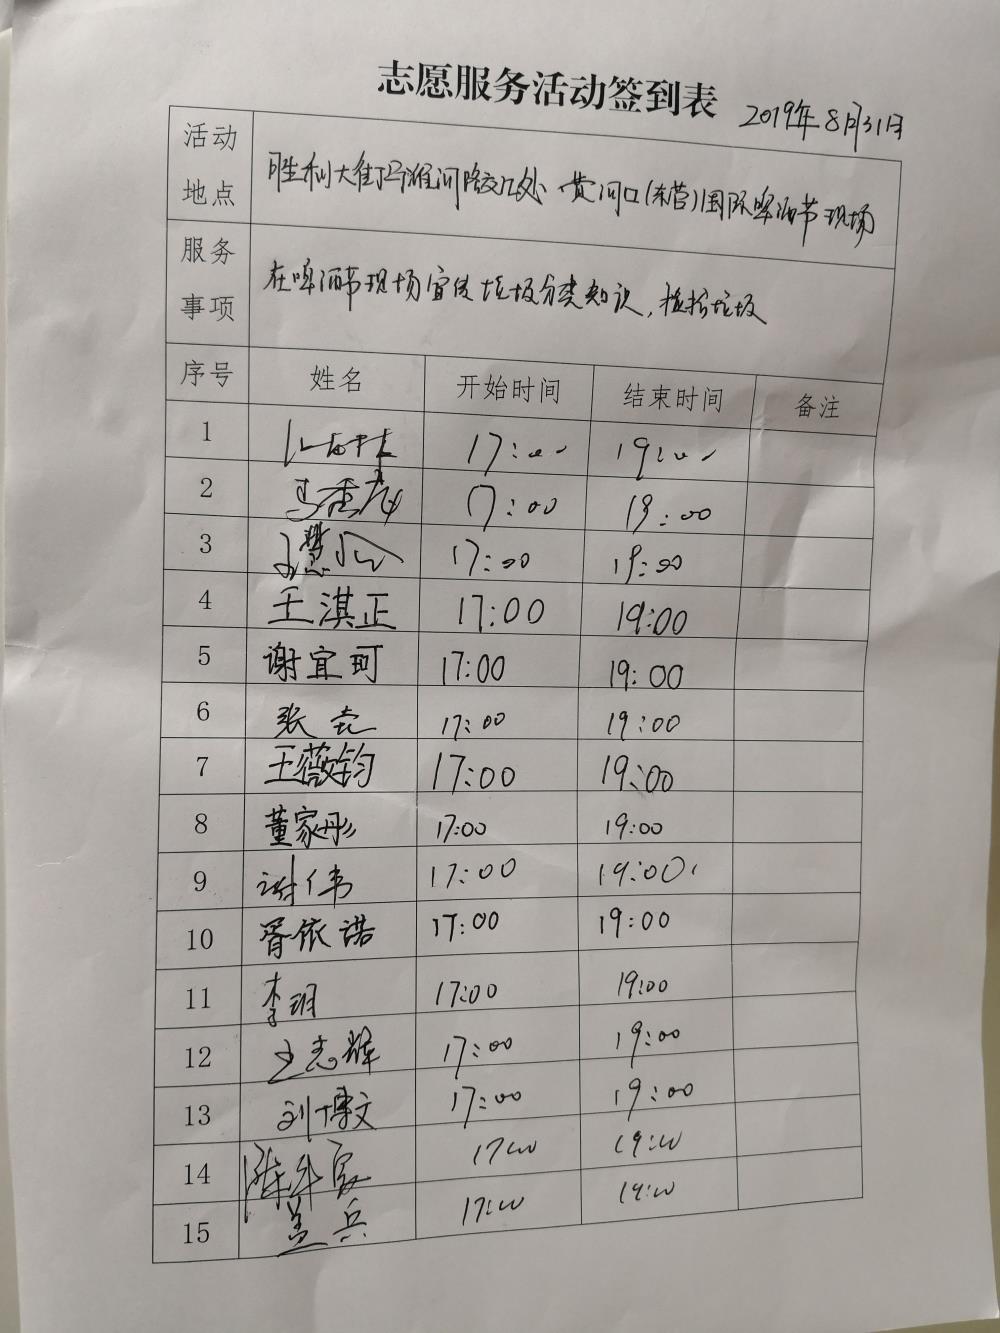 志愿服务活动签到表 2019年8月31日
活动地点 胜利大街与淮河路交汇处 黄河口(东营)国际啤酒节现场
服务事项 在啤酒节现场宣传垃圾分类知识,捡拾垃圾
序号 姓名 开始时间 结束时间 备注
1 17:00 19:00
2 17:00 19:00
3 17:00 19:00
4 王淇正 17:00 19:00
5 谢宜珂 17:00 19:00
6 张 17:00 19:00
7 王薇钧 17:00 19:00
8 董家彤 17:00 19:00
9 谢伟 17:00 19:00
10 胥依诺 17:00 19:00
11 李玥 17:00 19:00
12 王志辉 17:00 19:00
13 刘博文 17:00 19:00
14 17:00 19:00
15 盖兵 17:00 19:00